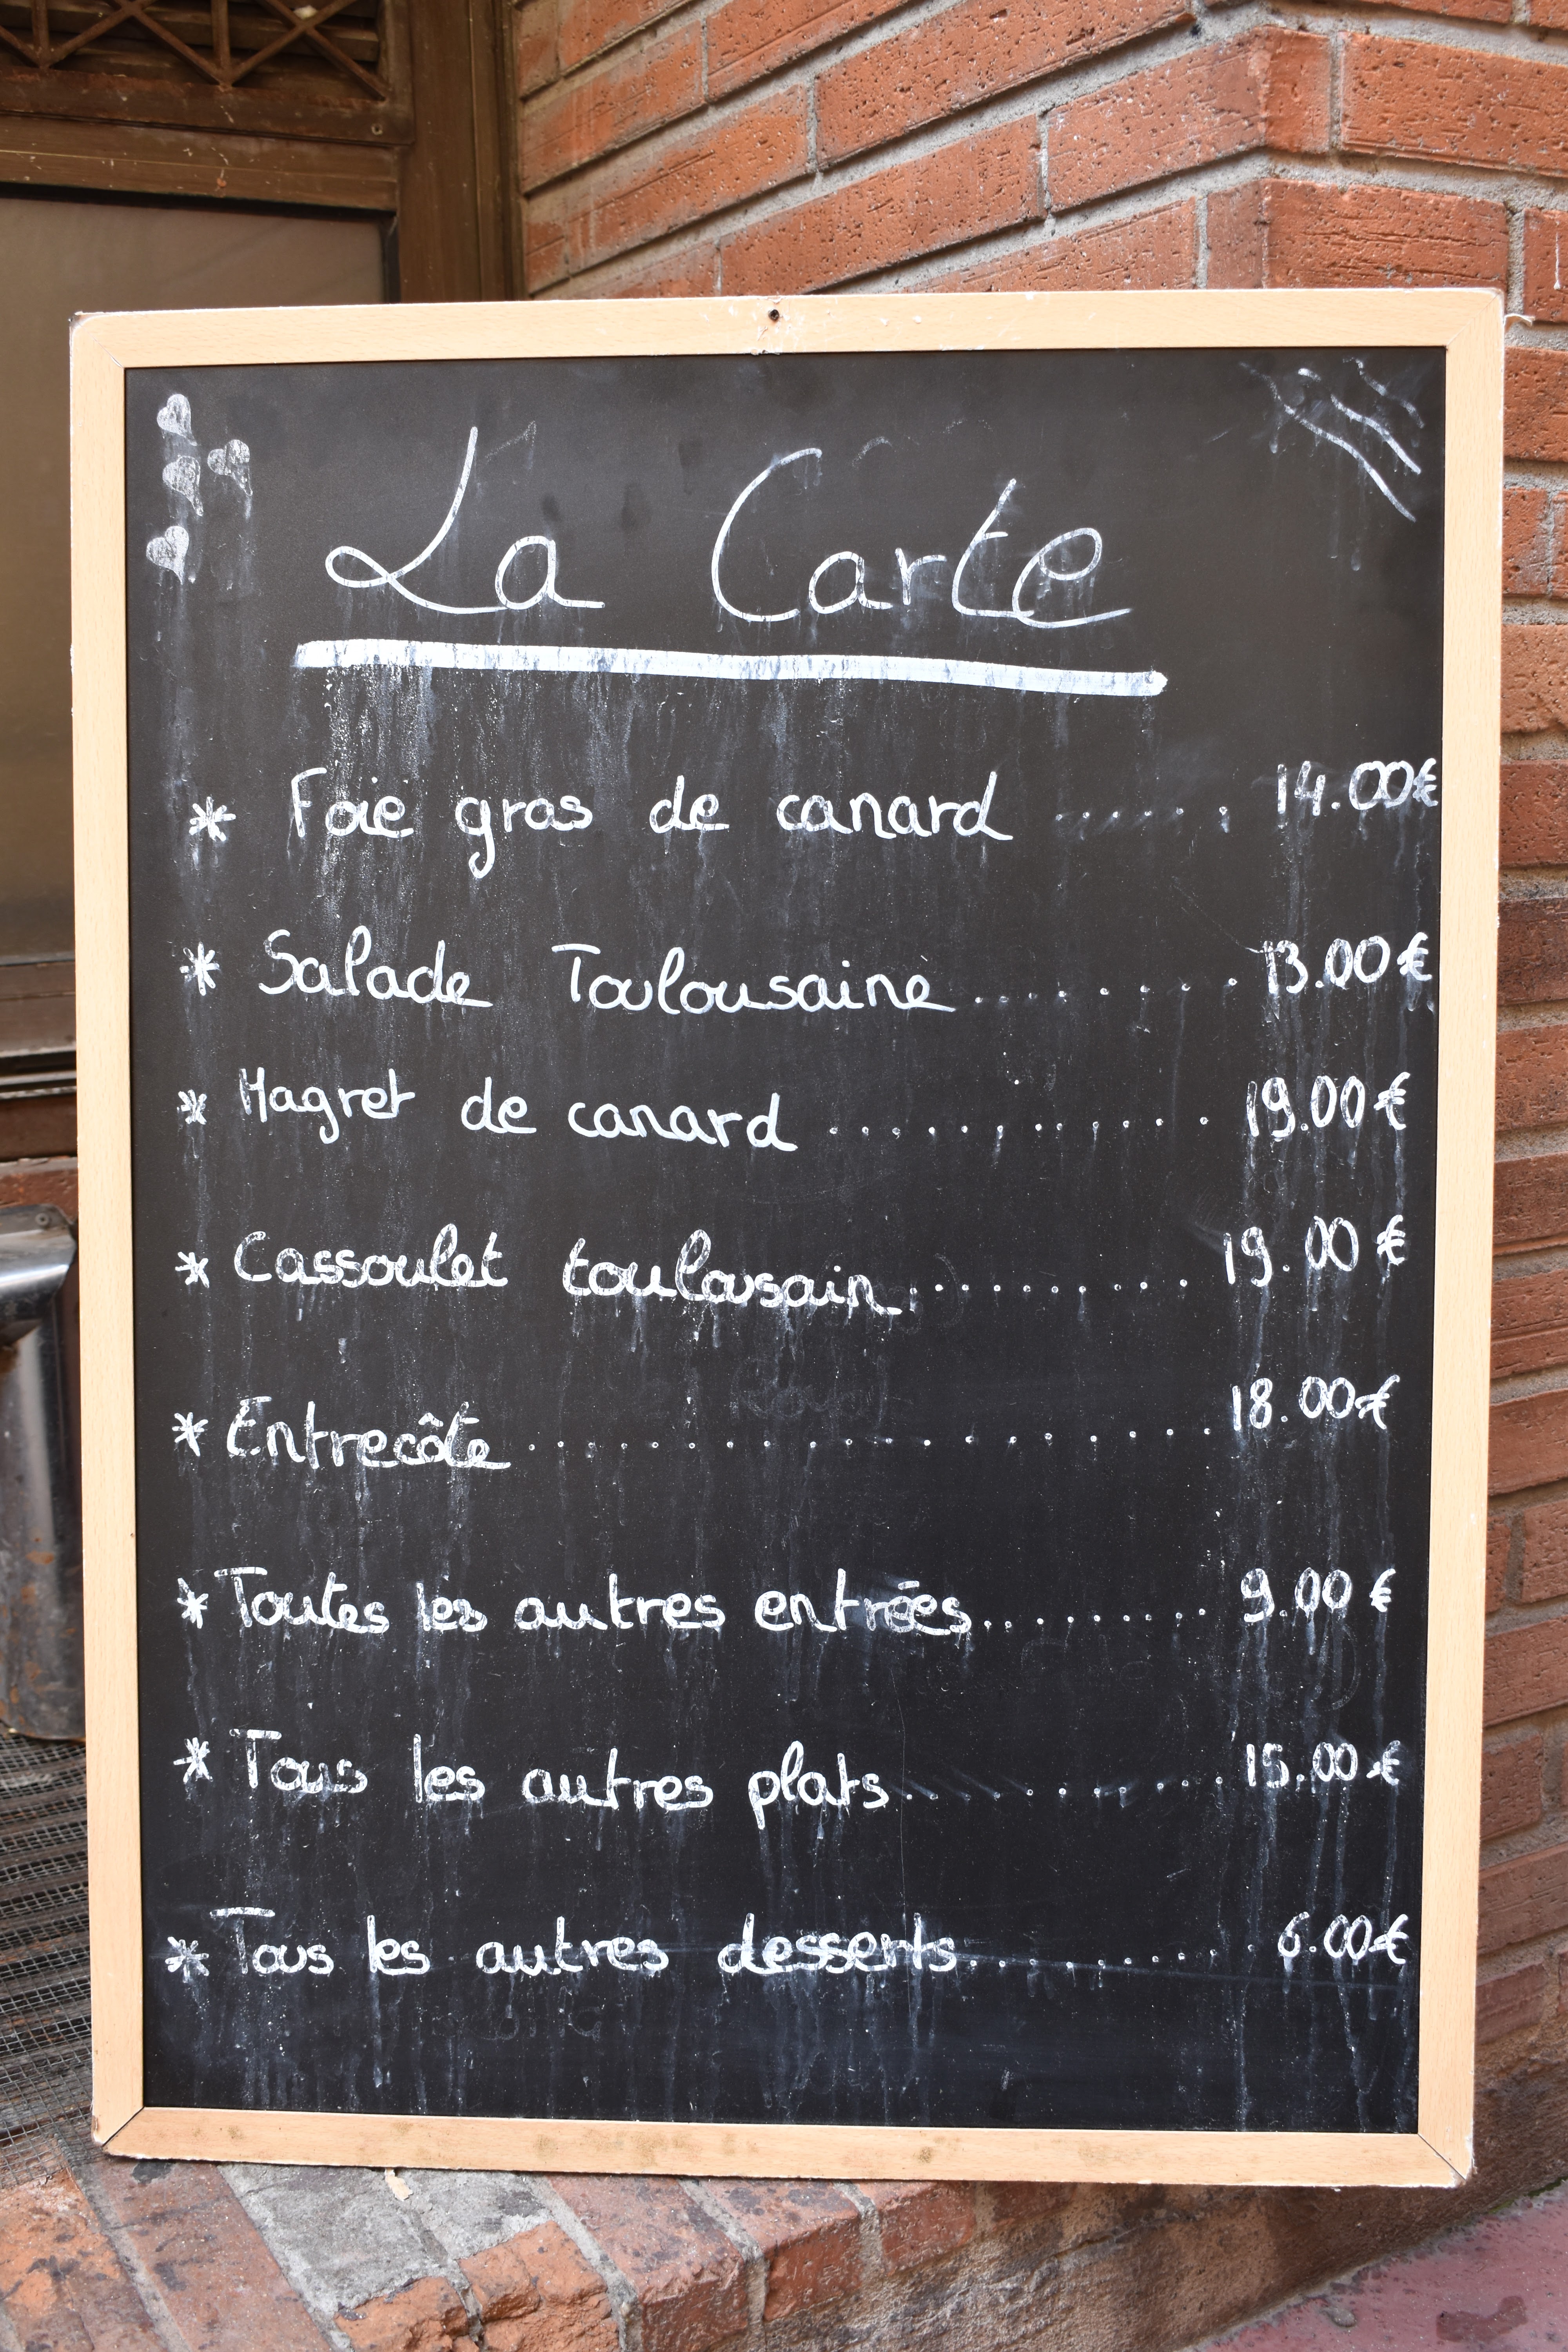 La Carte
* Foie gras de canard ...... 14.00€
* Salade Toulousaine ......... 13.00€
* Magret de canard ............. 19.00€
* Cassoulet toulousain ........... 19.00€
* Entrecôte ..................... 18.00€
* Toutes les autres entrées .......... 9.00€
* Tous les autres plats ........... 15.00€
* Tous les autres desserts ........... 6.00€